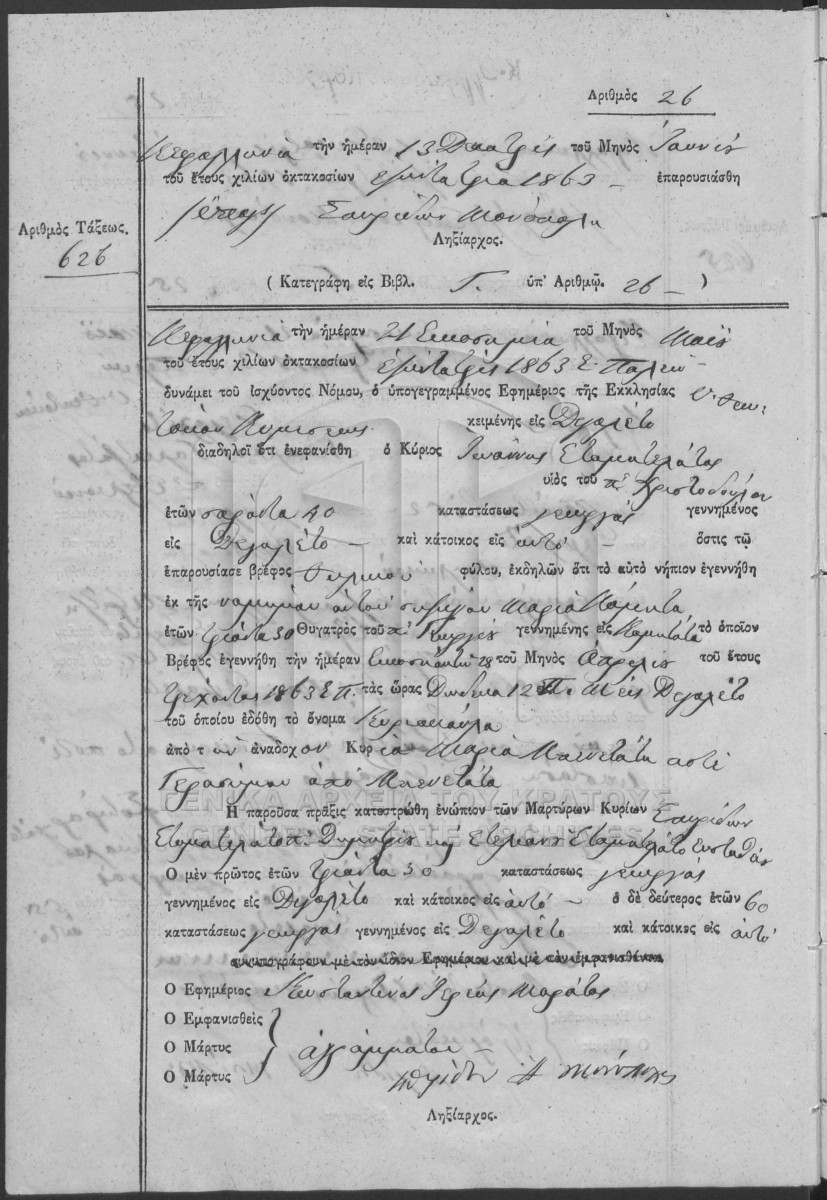 Ἀριθμὸς 26
Κεφαλληνία τὴν ἡμέραν 13 Δεκατρεῖς τοῦ Μηνὸς Ἰουνίου
τοῦ ἔτους χιλίων ὀκτακοσίων ἑξήντα τρία 1863 — ἐπαρουσιάσθη
Σπυρίδων
Ληξίαρχος.
Ἀριθμὸς Τάξεως.
626
( Κατεγράφη εἰς Βιβλ. Γ. ὑπ' Ἀριθμῷ. 26 — )
Κεφαλληνία τὴν ἡμέραν 21 Εικοσιμία τοῦ Μηνὸς Μαΐου
τοῦ ἔτους χιλίων ὀκτακοσίων ἑξήντα τρία 1863 Ε. Παλαιόν
δυνάμει τοῦ ἰσχύοντος Νόμου, ὁ ὑπογεγραμμένος Ἐφημέριος τῆς Ἐκκλησίας
Κοιμήσεως κειμένης εἰς Διγαλέτο
διαδηλοῖ ὅτι ἐνεφανίσθη ὁ Κύριος Ἰωάννης Σταματελάτος
υἱὸς τοῦ πτ Χριστοδούλου
ἐτῶν σαράντα 40 καταστάσεως γεωργός γεννημένος
εἰς Διγαλέτο — καὶ κάτοικος εἰς αὐτό — ὅστις τῷ
ἐπαρουσίασε βρέφος θηλυκοῦ φύλου, ἐκδηλῶν ὅτι τὸ αὐτὸ νήπιον ἐγεννήθη
ἐκ τῆς νομίμου αὐτοῦ συζύγου Μαρία
ἐτῶν τριάντα 30 Θυγατρὸς τοῦ πτ Γεωργίου γεννημένης εἰς Κομητάτα τὸ ὁποῖον
Βρέφος ἐγεννήθη τὴν ἡμέραν Εικοσιοκτώ 28 τοῦ Μηνὸς Απριλίου τοῦ ἔτους
τρέχοντος 1863 Ε Π. τὰς ὥρας Δώδεκα 12 Π. Μ εἰς Διγαλέτο
τοῦ ὁποίου ἐδόθη τὸ ὄνομα Κυριακούλα
ἀπὸ τὴν ἀνάδοχον Κυρία Μαρία
Γερασίμου ἀπό
Ἡ παροῦσα πρᾶξις κατεστρώθη ἐνώπιον τῶν Μαρτύρων Κυρίων Σπυρίδων
Σταματελάτο πτ Δημητρίου καὶ Στεφανο Σταματελάτο Ευσταθίου
Ὁ μὲν πρῶτος ἐτῶν τριάντα 30 καταστάσεως γεωργός
γεννημένος εἰς Διγαλέτο καὶ κάτοικος εἰς αὐτό — ὁ δὲ δεύτερος ἐτῶν 60
καταστάσεως γεωργός γεννημένος εἰς Διγαλέτο καὶ κάτοικος εἰς αὐτό
συνυπογράφουν μὲ τὸν ἴδιον Ἐφημέριον καὶ μὲ τὸν ἐμφανισθέντα
Ὁ Ἐφημέριος Κωνσταντίνος Ἱερεύς Μαράτος
Ὁ Ἐμφανισθεὶς
Ὁ Μάρτυς ἀγράμματοι —
Ὁ Μάρτυς
Ληξίαρχος.
ΓΕΝΙΚΑ ΑΡΧΕΙΑ ΤΟΥ ΚΡΑΤΟΥΣ
GENERAL STATE ARCHIVES